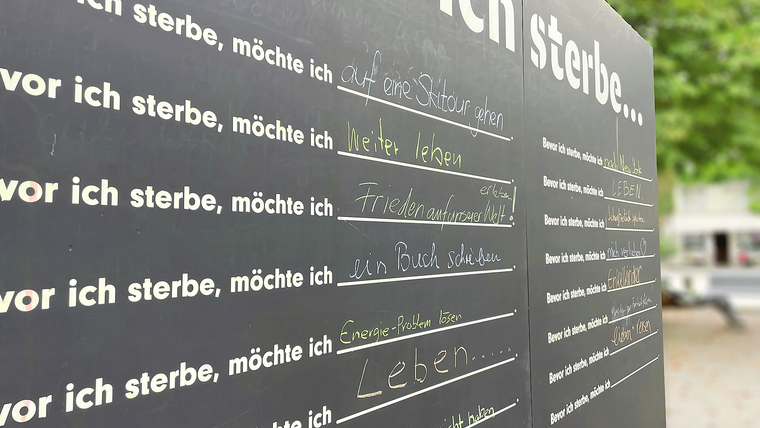 ich sterbe...
ich sterbe, möchte ich auf eine Skitour gehen.
vor ich sterbe, möchte ich weiter leben.
vor ich sterbe, möchte ich Frieden auf unserer Welt erleben!
vor ich sterbe, möchte ich ein Buch schreiben.
vor ich sterbe, möchte ich Energie-Problem lösen.
vor ich sterbe, möchte ich Leben.....
möchte ich
Bevor ich sterbe, möchte ich nach New York
Bevor ich sterbe, möchte ich LEBEN
Bevor ich sterbe, möchte ich
Bevor ich sterbe, möchte ich mich verlieben
Bevor ich sterbe, möchte ich Enkelkinder
Bevor ich sterbe, möchte ich
Bevor ich sterbe, möchte ich
Bevor ich sterbe, möchte ich